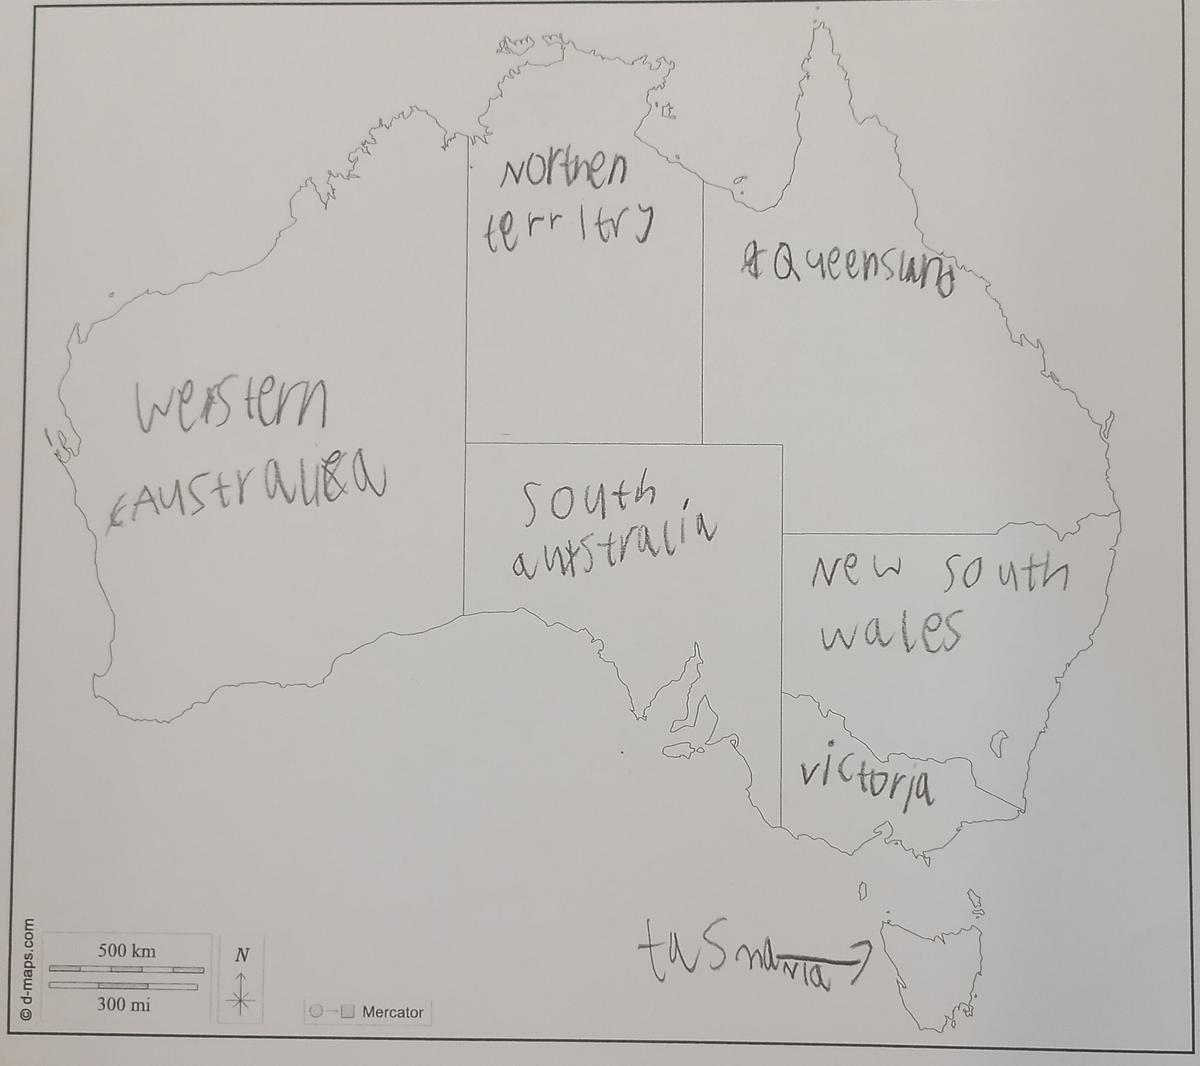 Northen
territry
Queensland
Western
Australia
south
australia
New south
wales
victoria
tasmania
500 km
300 mi
N
Mercator
© d-maps.com